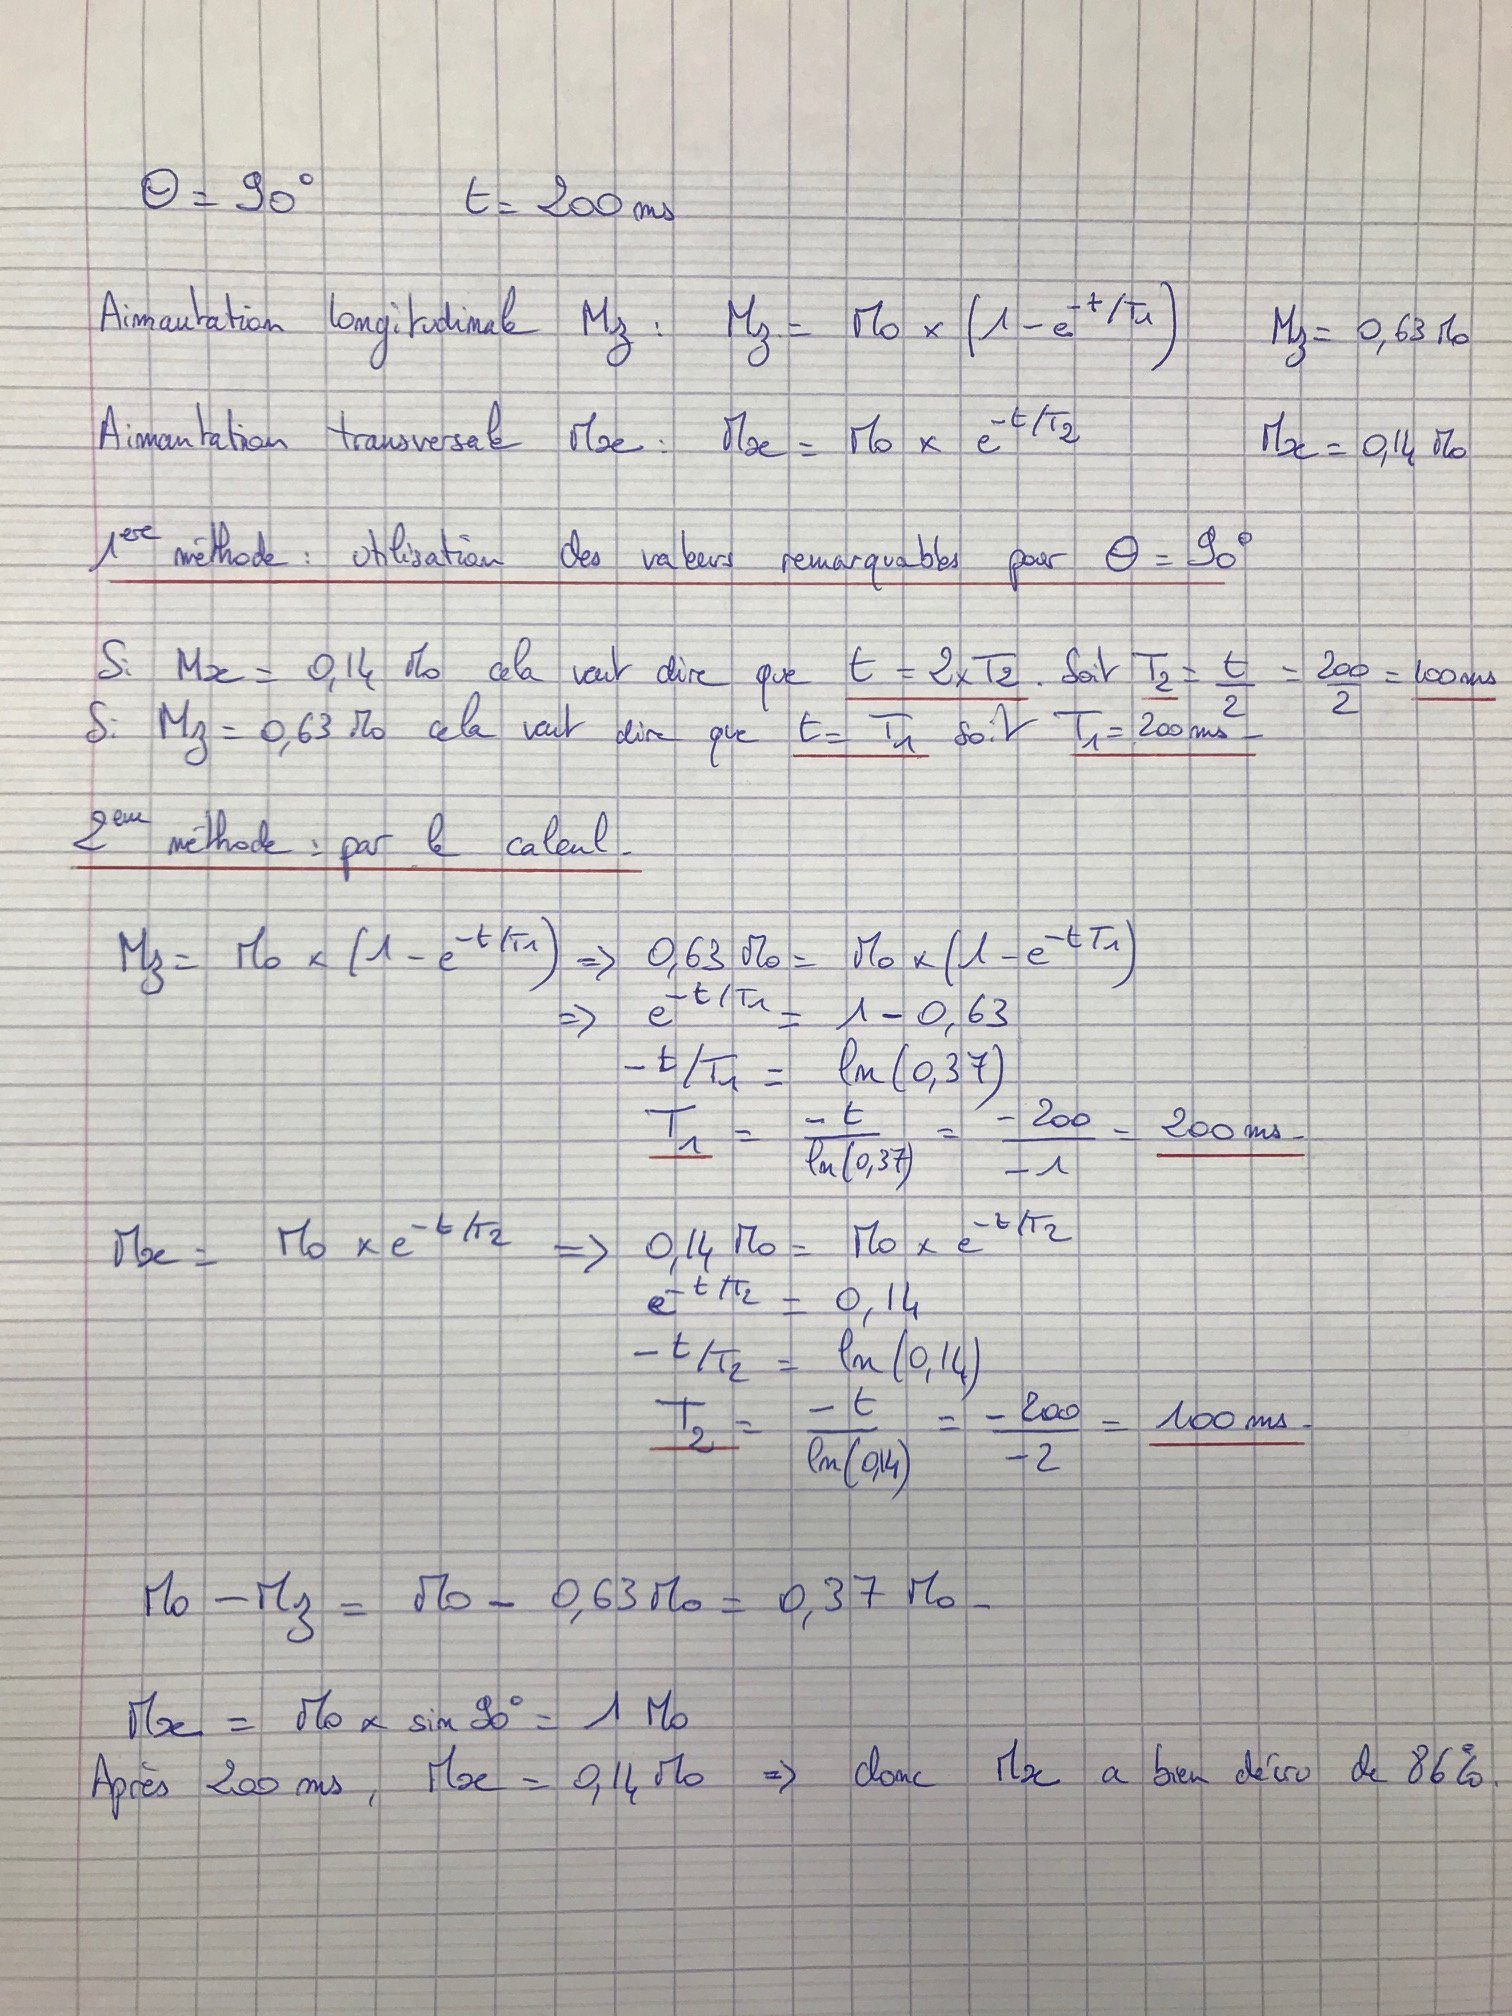 θ = 90° t = 200 ms
Aimantation longitudinale Mz : Mz = M0 × (1 - e^-t/T1) Mz = 0,63 M0
Aimantation transversale Mx : Mx = M0 × e^-t/T2 Mx = 0,14 M0
1ere méthode : utilisation des valeurs remarquables pour θ = 90°
Si Mx = 0,14 M0 cela veut dire que t = 2×T2. Soit T2 = t/2 = 200/2 = 100 ms
Si Mz = 0,63 M0 cela veut dire que t = T1 soit T1 = 200 ms -
2eme méthode : par le calcul -
Mz = M0 × (1 - e^-t/T1) => 0,63 M0 = M0 × (1 - e^-t T1)
=> e^-t/T1 = 1 - 0,63
-t/T1 = ln(0,37)
T1 = -t/ln(0,37) = -200/-1 = 200 ms -
Mx = M0 × e^-t/T2 => 0,14 M0 = M0 × e^-t/T2
e^-t/T2 = 0,14
-t/T2 = ln(0,14)
T2 = -t/ln(0,14) = -200/-2 = 100 ms -
M0 - Mz = M0 - 0,63 M0 = 0,37 M0 -
Mx = M0 × sin 90° = 1 M0
Après 200 ms, Mx = 0,14 M0 => donc Mx a bien décru de 86%.